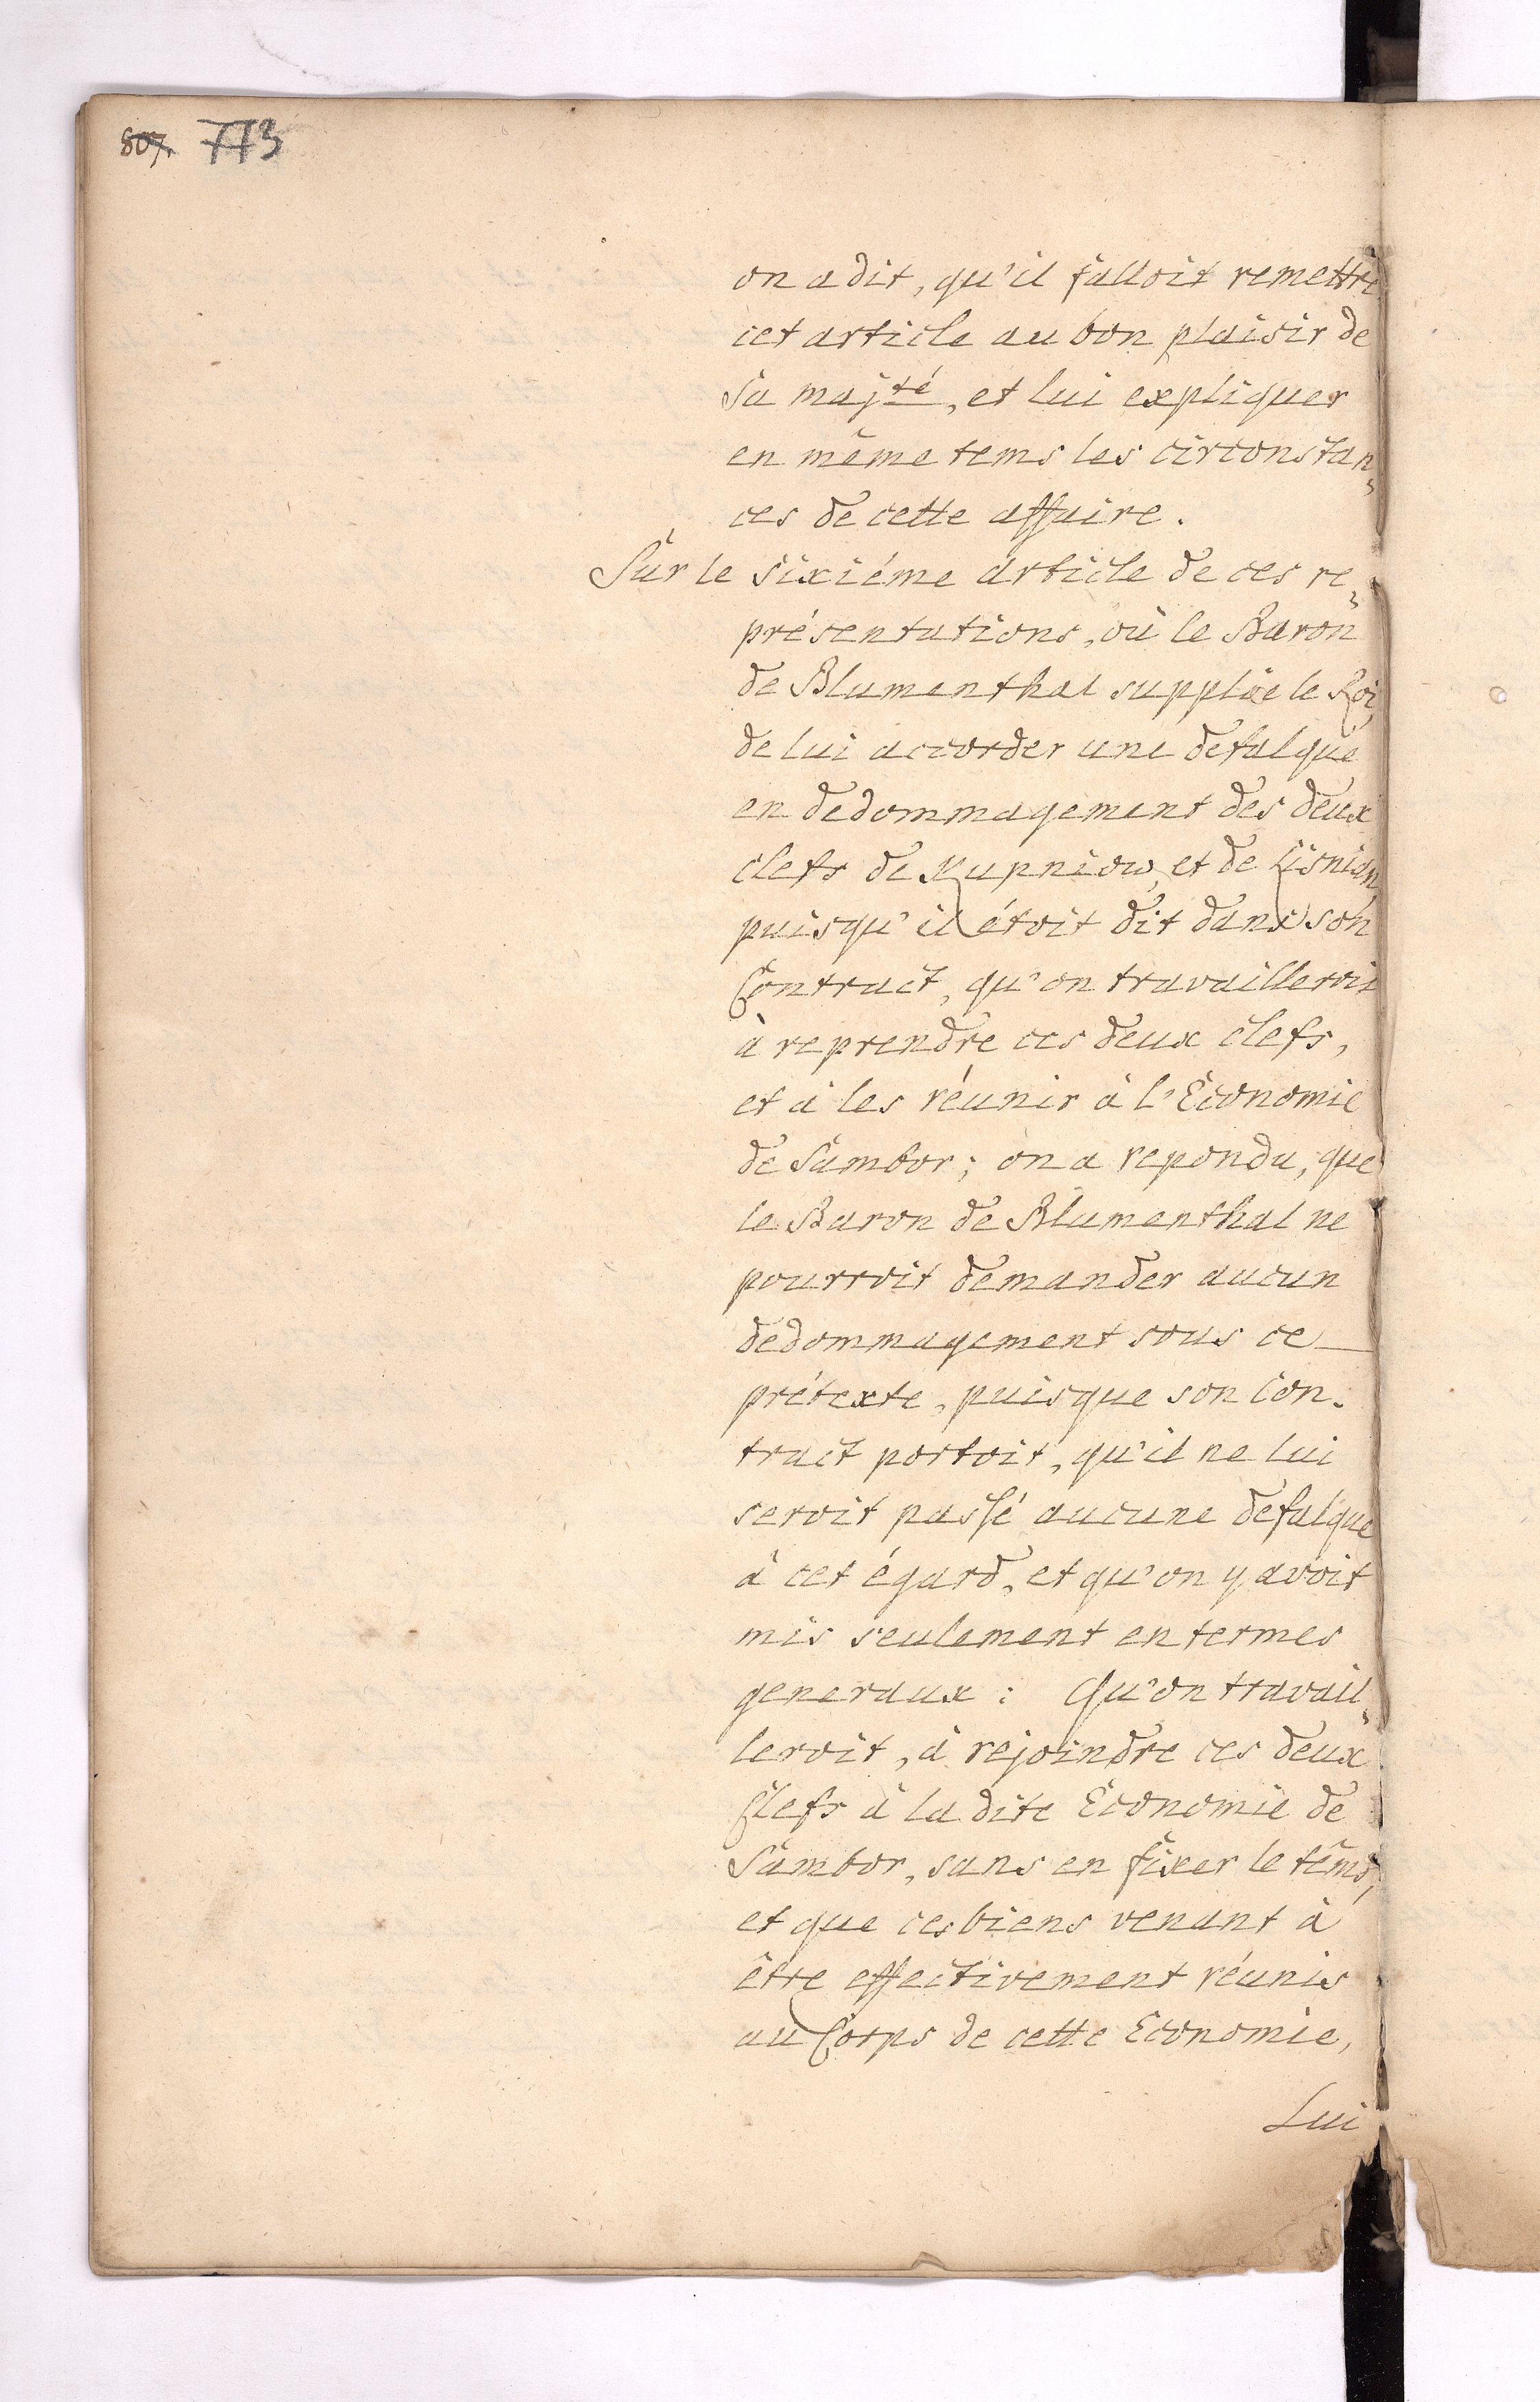 807. 773
on a dit, qu'il falloit remettre
cet article au bon plaisir de
Sa majté, et lui expliquer
en même tems les circonstan„
ces de cette affaire.
Sur le sixiéme article de ces re„
présentations, où le Baron
de Blumenthal supplie le Roi,
de lui accorder une defalque
en dedommagement des deux
clefs de Kupniow, et de
puisqu'il étoit dit dans son
Contract, qu'on travailleroit
à reprendre ces deux clefs,
et à les réunir à l'Economie
de Sambor; on a repondu, que
le Baron de Blumenthal ne
pourroit demander aucun
dedommagement sous ce
prétexte, puisque son Con„
tract portoit, qu'il ne lui
seroit passé aucune defalque
à cet égard, et qu'on y avoit
mis seulement en termes
generaux: Qu'on travail„
leroit, à rejoindre ces deux
Clefs à la dite Economie de
Sambor, sans en fixer le tems,
et que ces biens venant à
être effectivement réunis
au Corps de cette Economie,
Lui